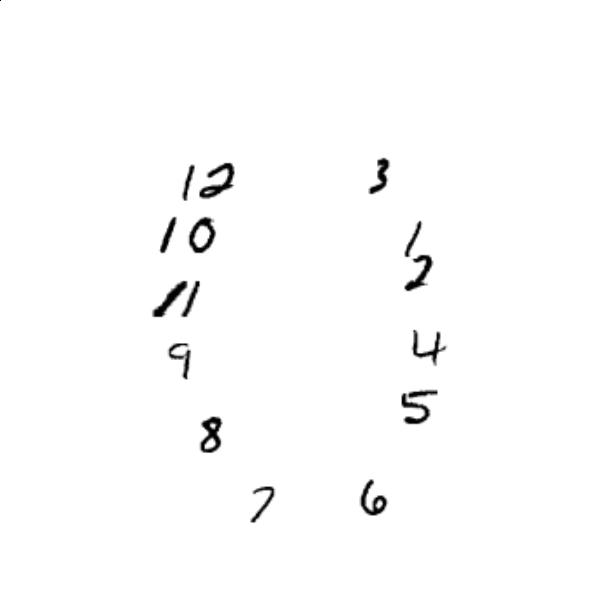 12 3
10 1
2
11
9 4
5
8
7 6